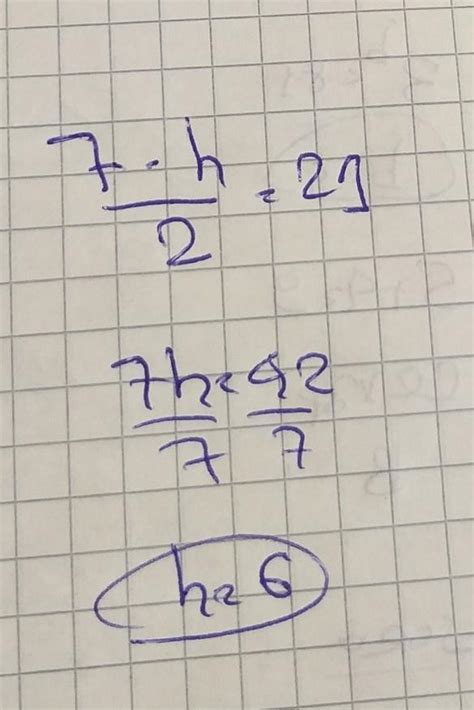 7 · h / 2 = 21
7h / 7 = 42 / 7
h = 6